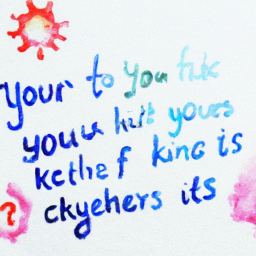 Your to you fuk
youu hilt youes
kcthe f king is
ckyehers its
?